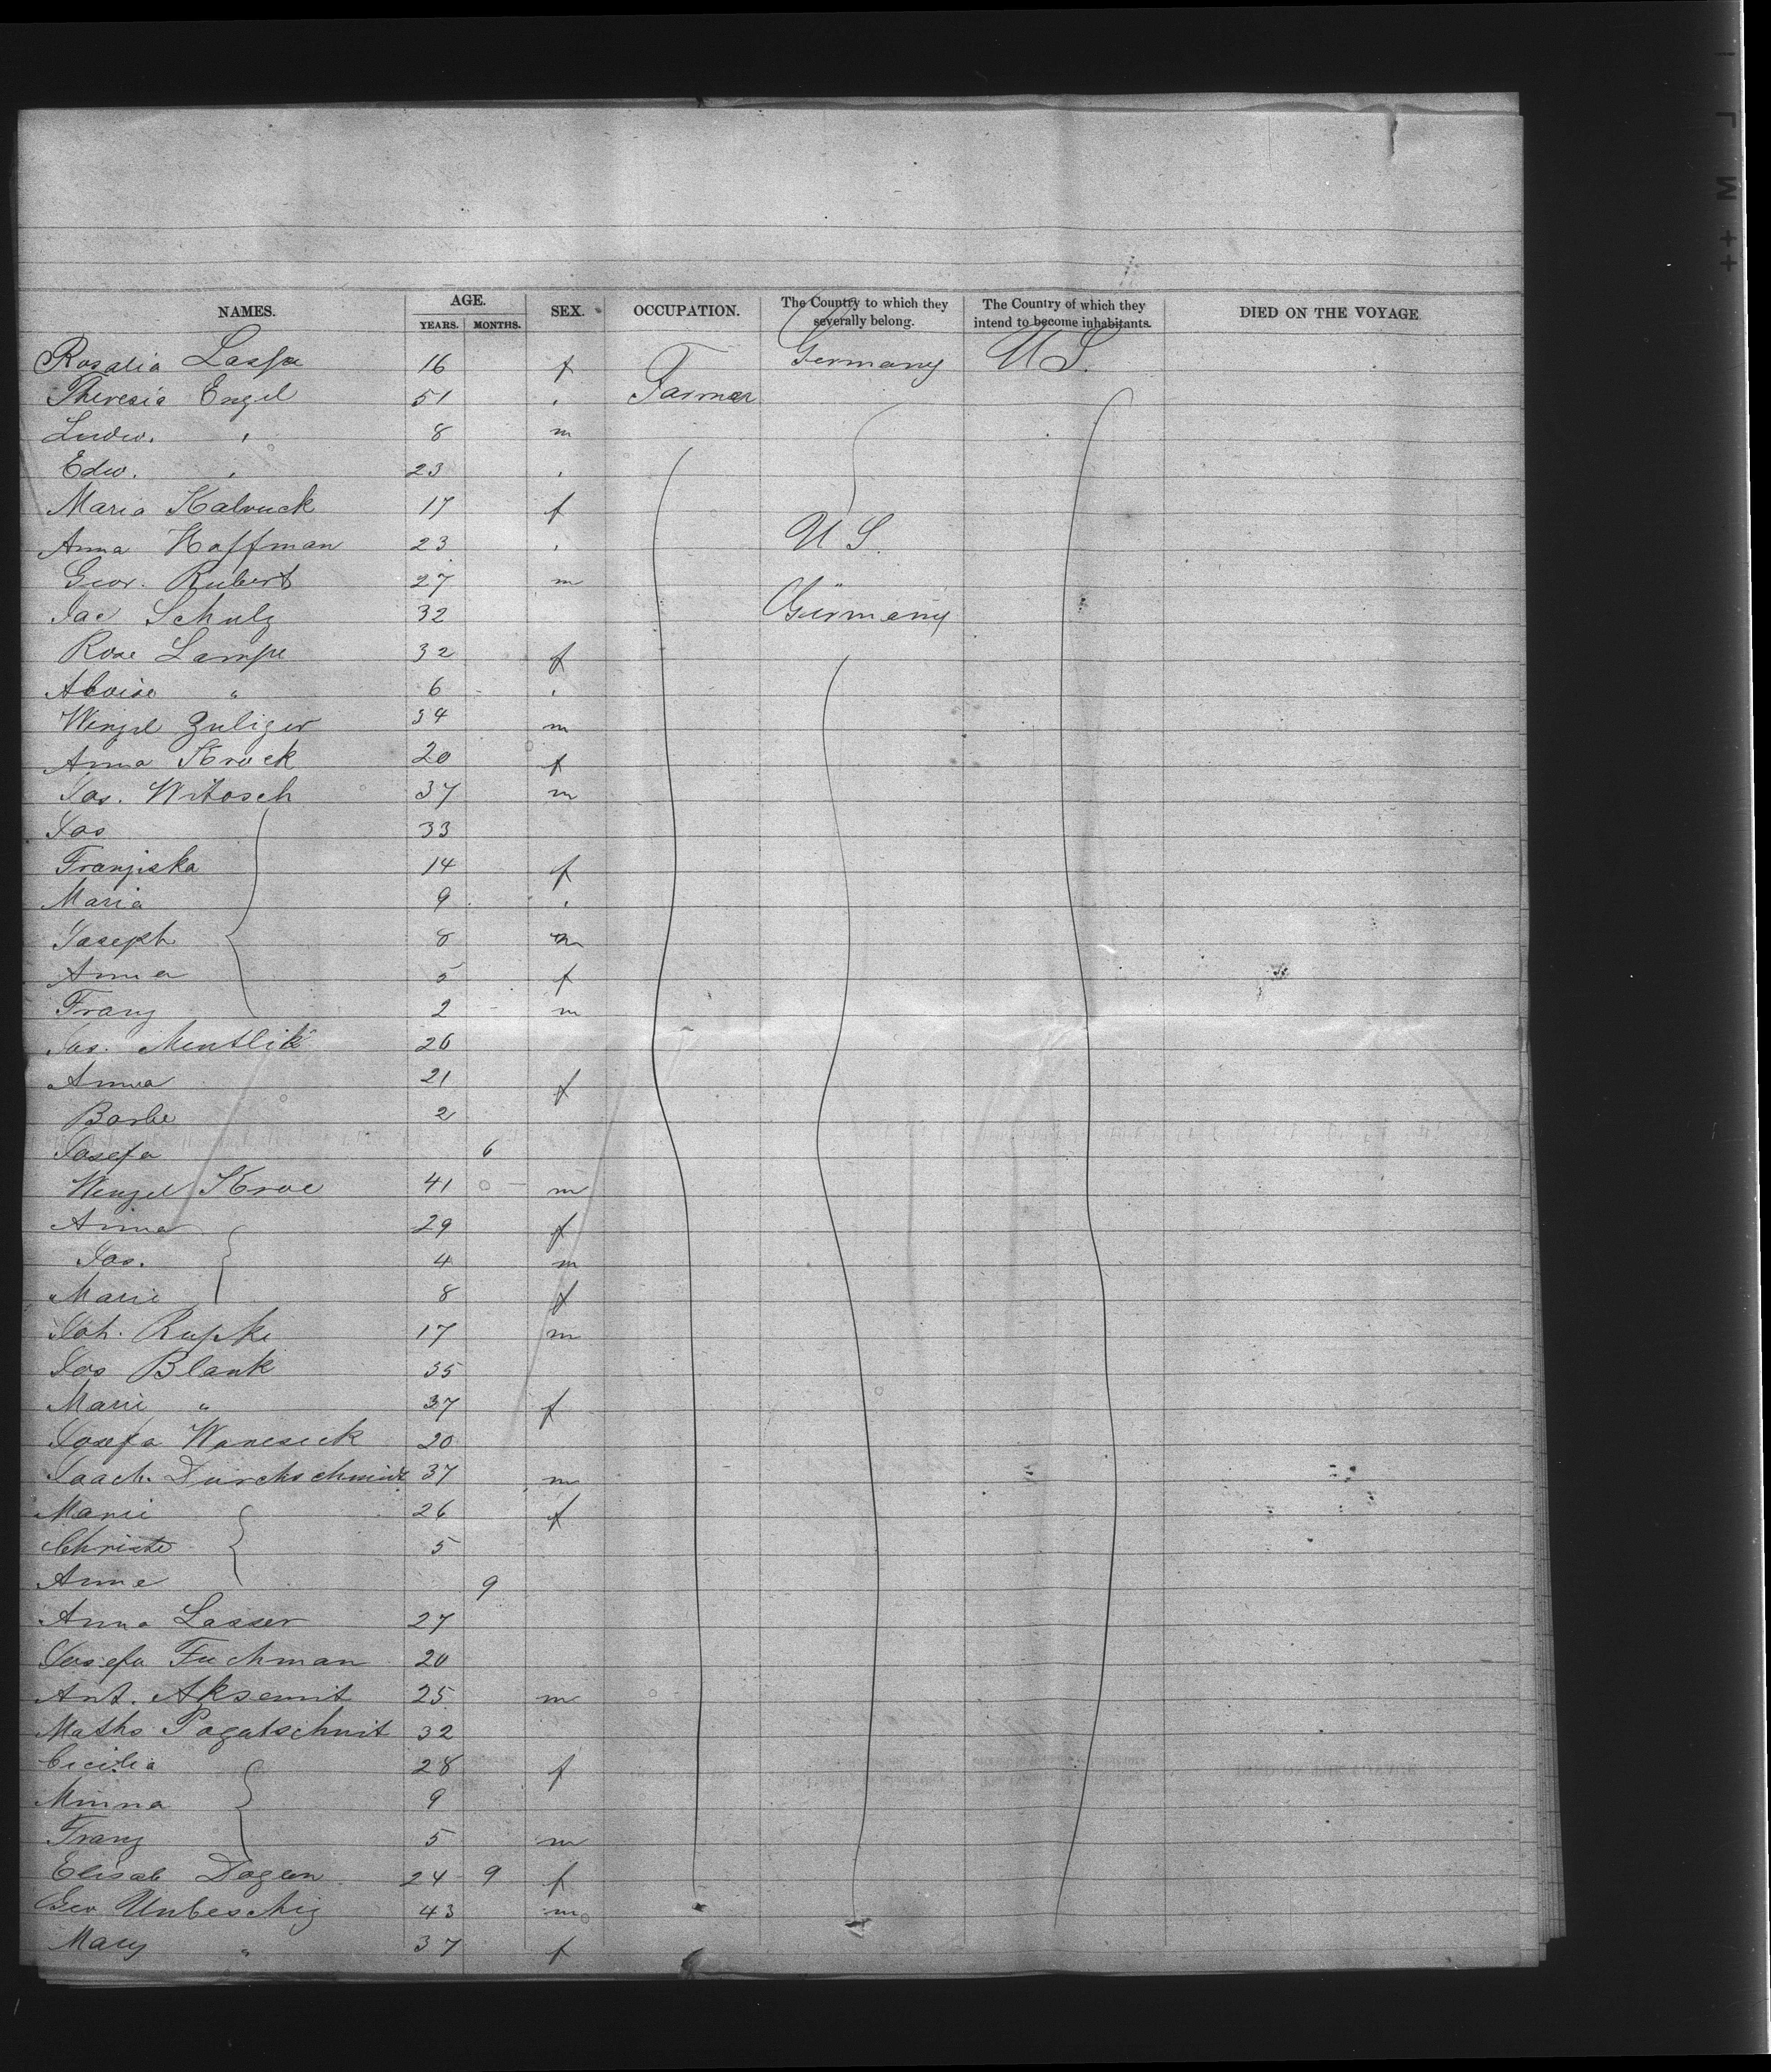 NAMES. AGE. SEX. OCCUPATION. The Country to which they severally belong. The Country of which they intend to become inhabitants. DIED ON THE VOYAGE
YEARS. MONTHS.
Rosalia 16 f Germany U S.
Theresia Engel 51 " Farmer
Ludw. " 8 m
Edw. " 23 "
Maria Kalvuck 17 f
Anna Hoffman 23 " U S.
Geor. Rubert 27 m "
Jac Schulz 32 Germany
Rose Lampe 32 f
Aloise " 6 "
Wenzel Zuliger 34 m
Anna Kruck 20 f
Jos. Witosch 37 m
Jos 33
Franziska 14 f
Maria 9 "
Joseph 8 m
Anna 5 f
Franz 2 m
Jos. Mentlik 26
Anna 21 f
Barbe 2
Josefa 6
Wenzel Kroe 41 m
Anna 29 f
Jos. 4 m
Marie 8 f
Joh. Rupke 17 m
Jos Blank 35
Marie " 37 f
Josefa Waneseck 20
Joach. Durchschmidt 37 m
Marie 26 f
Christe 5
Anne 9
Anna Lasser 27
Josefa Fuchman 20
Ant. Aksemit 25 m
Maths Pogatschnit 32
Cicilia 28 f
Minna 9
Franz 5 m
Elisab Dogen 24 9 f
Geo Unbeschig 43 m
Mary " 37 f